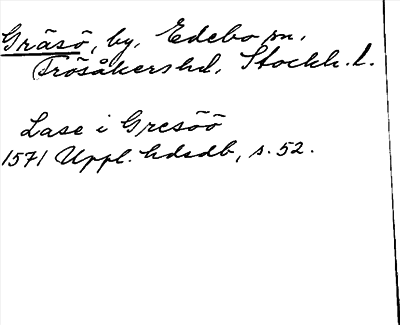 Gräsö, by, Edebo sn,
Frösåkers hd, Stockh. l.
Lase i Gresöö
1571 Uppl. hdsdb, s. 52.